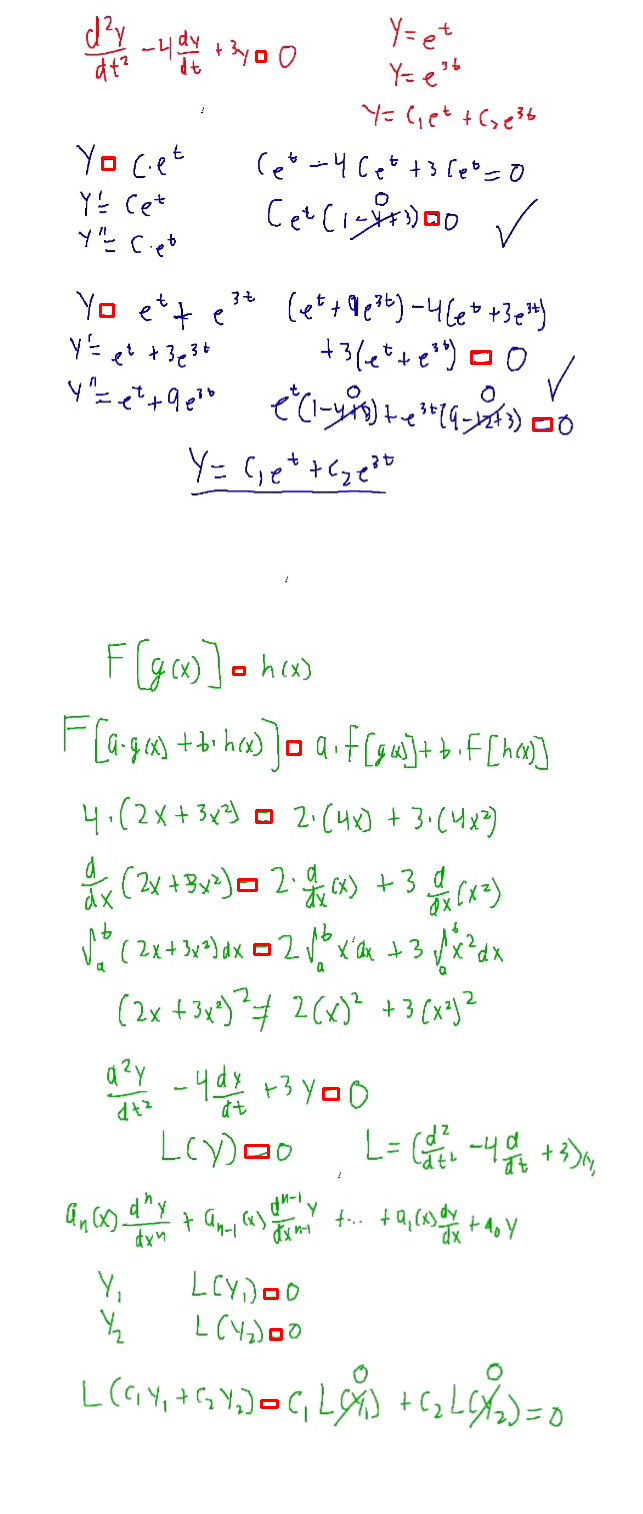 d²y/dt² - 4 dy/dt + 3y = 0
y = e^t
y = e^3t
y = C₁e^t + C₂e^3t
y = C·e^t
Ce^t - 4Ce^t + 3Ce^t = 0
y' = Ce^t
Ce^t(1-4+3) = 0 ✓
0
y'' = C·e^t
y = e^t + e^3t
(e^t + 9e^3t) - 4(e^t + 3e^3t)
y' = e^t + 3e^3t
+3(e^t + e^3t) = 0 ✓
y'' = e^t + 9e^3t
0 0
e^t(1-4+3) + e^3t(9-12+3) = 0
y = C₁e^t + C₂e^3t
F[g(x)] = h(x)
F[a·g(x) + b·h(x)] = a·F[g(x)] + b·F[h(x)]
4·(2x + 3x²) = 2·(4x) + 3·(4x²)
d/dx (2x + 3x²) = 2·d/dx (x) + 3 d/dx (x²)
∫_a^b (2x + 3x²)dx = 2∫_a^b x dx + 3∫_a^b x² dx
(2x + 3x²)² ≠ 2(x)² + 3(x²)²
d²y/dt² - 4 dy/dt + 3y = 0
L(y) = 0
L = (d²/dt² - 4 d/dt + 3)
aₙ(x) dⁿy/dxⁿ + aₙ₋₁(x) dⁿ⁻¹y/dxⁿ⁻¹ + ... + a₁(x) dy/dx + a₀y
y₁ L(y₁) = 0
y₂ L(y₂) = 0
0 0
L(c₁y₁ + c₂y₂) = c₁L(y₁) + c₂L(y₂) = 0